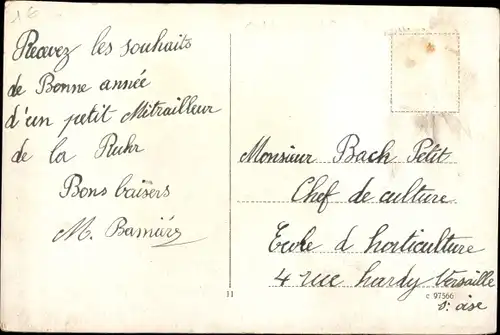 1€
Recevez les souhaits
de Bonne année
d'un petit Mitrailleur
de la Ruhr
Bons baisers
M.
Monsieur Bach Petit
Chef de culture
Ecole d horticulture
4 rue hardy Versaille
S. oise
11
c 97566